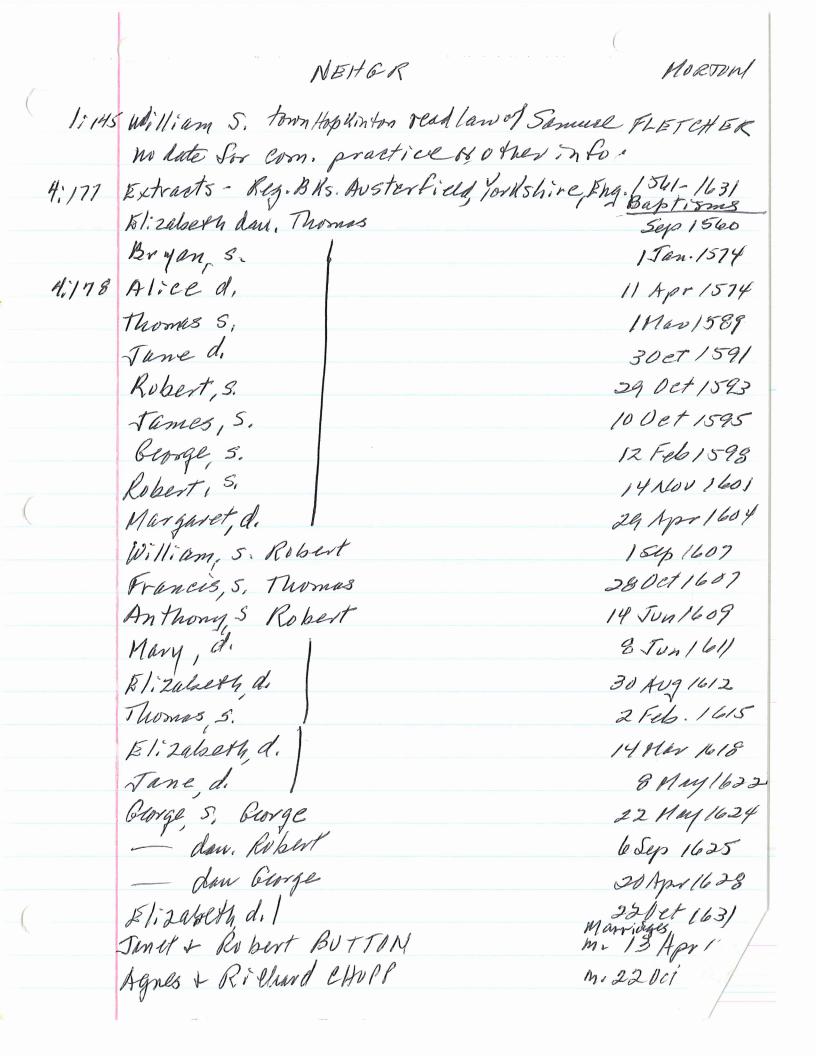 NEHGR MORTON
1:145 William S. town Hopkinton read law of Samuel FLETCHER
no date for com. practice or other info.
4:177 Extracts - Reg. Bks. Austerfield, Yorkshire, Eng. 1561-1631
Baptisms
Elizabeth dau. Thomas Sep 1560
Bryan, s. 1 Jan. 1574
4:178 Alice d. 11 Apr 1574
Thomas s. 1 Mar 1589
Jane d. 3 Oct 1591
Robert, s. 29 Oct 1593
James, s. 10 Oct 1595
George, s. 12 Feb 1598
Robert, s. 14 Nov 1601
Margaret, d. 29 Apr 1604
William, s. Robert 1 Sep 1607
Francis, s. Thomas 28 Oct 1607
Anthony, s Robert 14 Jun 1609
Mary, d. 8 Jun 1611
Elizabeth, d. 30 Aug 1612
Thomas, s. 2 Feb. 1615
Elizabeth, d. 14 Mar 1618
Jane, d. 8 May 1622
George, s, George 22 May 1624
— dau. Robert 6 Sep 1625
— dau George 20 Apr 1628
Elizabeth, d. 22 Oct 1631
Marriages
Janet + Robert BUTTON m. 13 Apr
Agnes + Richard m. 22 Oct